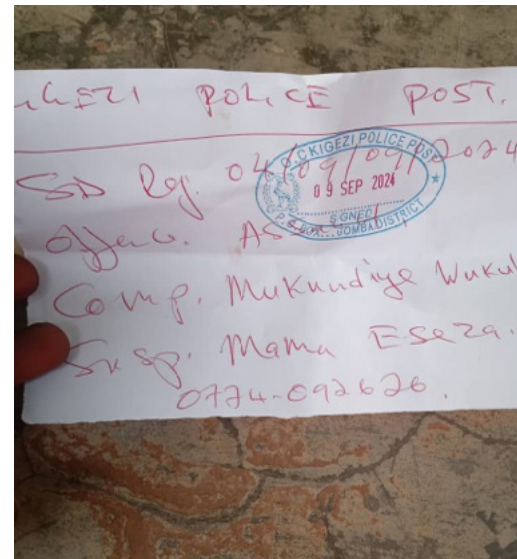 KIGEZI POLICE POST.
SD Ref. 04/09/09/2024
O/C KIGEZI POLICE POST
09 SEP 2024
SIGNED
P.O. BOX......GOMBA DISTRICT
Offence. Assault
Comp. Mukundiye Wukul
Susp. Mama Eseza.
0774-092626.